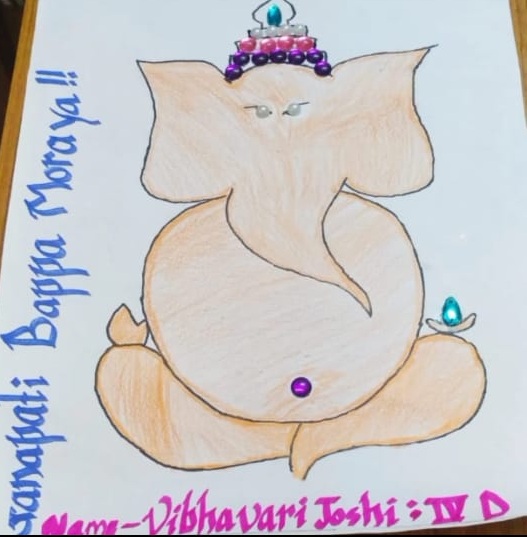 Ganapati Bappa Moraya!!
Name-Vibhavari Joshi: IV D